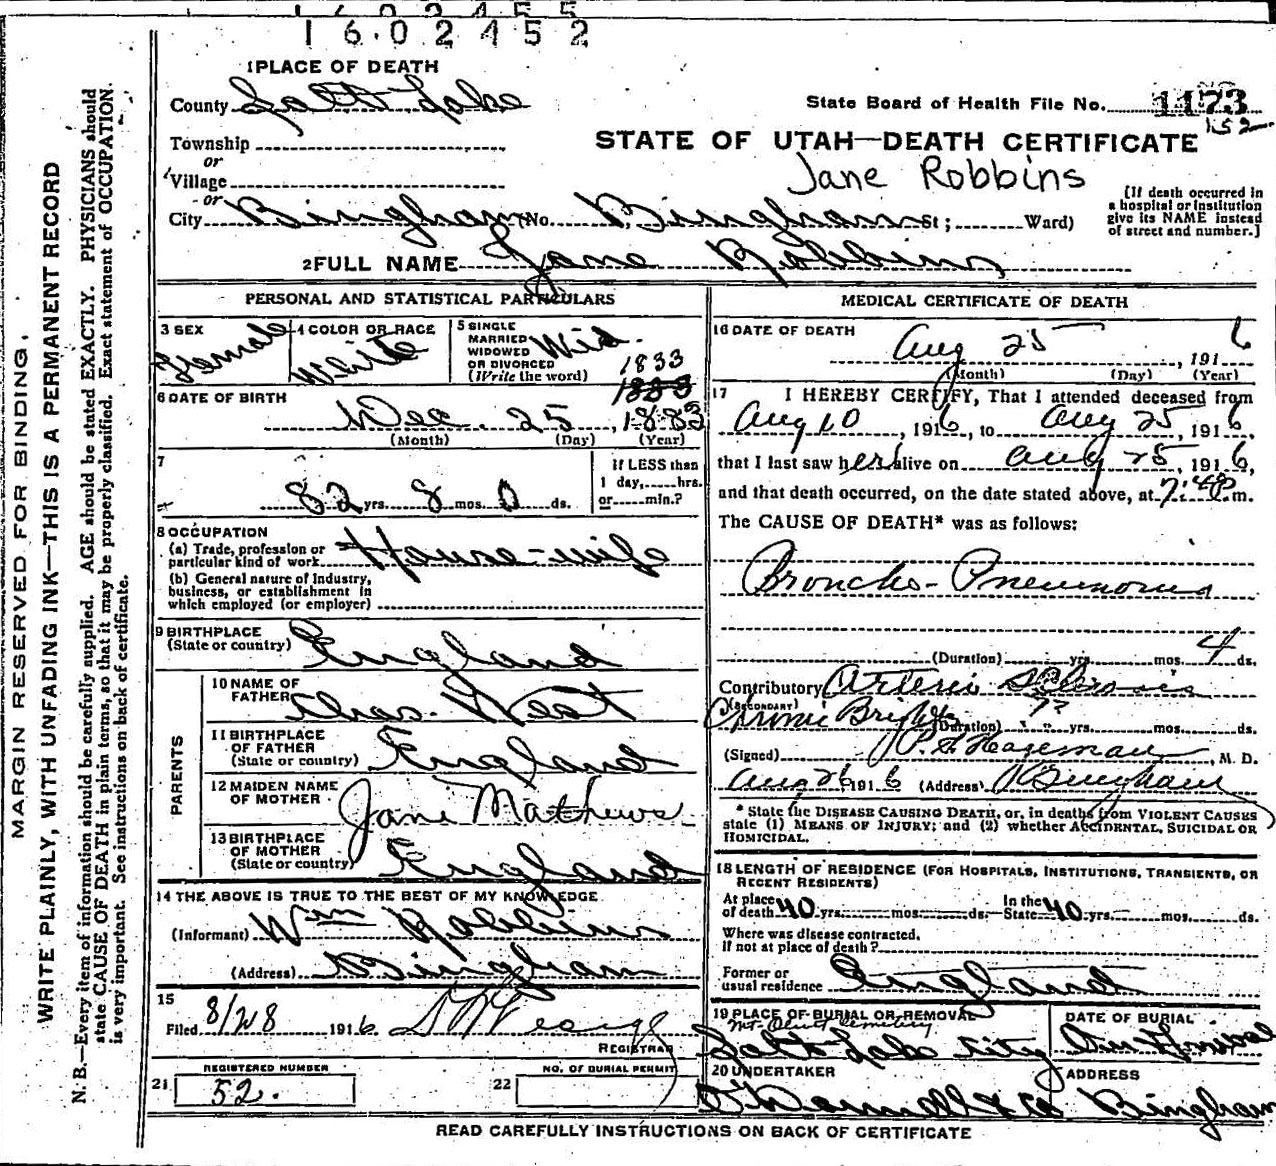 1602452
1 PLACE OF DEATH
County Salt Lake
State Board of Health File No. 1173
152
Township
or
Village
or
STATE OF UTAH—DEATH CERTIFICATE
Jane Robbins
City Bingham (No. Bingham St; Ward)
[If death occurred in
a hospital or institution
give its NAME instead
of street and number.]
2 FULL NAME Jane Robbins
PERSONAL AND STATISTICAL PARTICULARS
3 SEX
Female
4 COLOR OR RACE
White
5 SINGLE
MARRIED
WIDOWED
OR DIVORCED
(Write the word)
Wid.
1833
6 DATE OF BIRTH
Dec. 25, 1883
(Month) (Day) (Year)
7
82 yrs. 8 mos. 0 ds.
If LESS than
1 day, hrs.
or min.?
8 OCCUPATION
(a) Trade, profession or
particular kind of work
House-wife
(b) General nature of Industry,
business, or establishment in
which employed (or employer)
9 BIRTHPLACE
(State or country)
England
PARENTS
10 NAME OF
FATHER
Chas. West
11 BIRTHPLACE
OF FATHER
(State or country)
England
12 MAIDEN NAME
OF MOTHER
Jane Mathews
13 BIRTHPLACE
OF MOTHER
(State or country)
England
14 THE ABOVE IS TRUE TO THE BEST OF MY KNOWLEDGE
(Informant) Wm Robbins
(Address) Bingham
15
Filed 8/28 1916
REGISTRAR
21
REGISTERED NUMBER
52.
22
NO. OF BURIAL PERMIT
MEDICAL CERTIFICATE OF DEATH
16 DATE OF DEATH
Aug 25, 1916
(Month) (Day) (Year)
17 I HEREBY CERTIFY, That I attended deceased from
Aug 10, 1916, to Aug 25, 1916,
that I last saw her alive on Aug 25, 1916,
and that death occurred, on the date stated above, at 7:40 P.m.
The CAUSE OF DEATH* was as follows:
Broncho-Pneumonia
(Duration) yrs. mos. 4 ds.
Contributory Arterio Sclerosis
(SECONDARY)
Chronic Brights (Duration) ?? yrs. mos. ds.
(Signed) Hageman, M. D.
Aug 26 1916 (Address) Bingham
* State the DISEASE CAUSING DEATH, or, in deaths from VIOLENT CAUSES
state (1) MEANS OF INJURY; and (2) whether ACCIDENTAL, SUICIDAL OR
HOMICIDAL.
18 LENGTH OF RESIDENCE (FOR HOSPITALS, INSTITUTIONS, TRANSIENTS, OR
RECENT RESIDENTS)
At place
of death 40 yrs. mos. ds.
In the
State 40 yrs. mos. ds.
Where was disease contracted,
if not at place of death?
Former or
usual residence England
19 PLACE OF BURIAL OR REMOVAL
Mt. Olivet Cemetery
Salt Lake City
DATE OF BURIAL
On Arrival
20 UNDERTAKER
O'Donnell & Co
ADDRESS
Bingham
READ CAREFULLY INSTRUCTIONS ON BACK OF CERTIFICATE
MARGIN RESERVED FOR BINDING.
WRITE PLAINLY, WITH UNFADING INK—THIS IS A PERMANENT RECORD
N. B.—Every item of information should be carefully supplied. AGE should be stated EXACTLY. PHYSICIANS should
state CAUSE OF DEATH in plain terms, so that it may be properly classified. Exact statement of OCCUPATION.
is very important. See instructions on back of certificate.